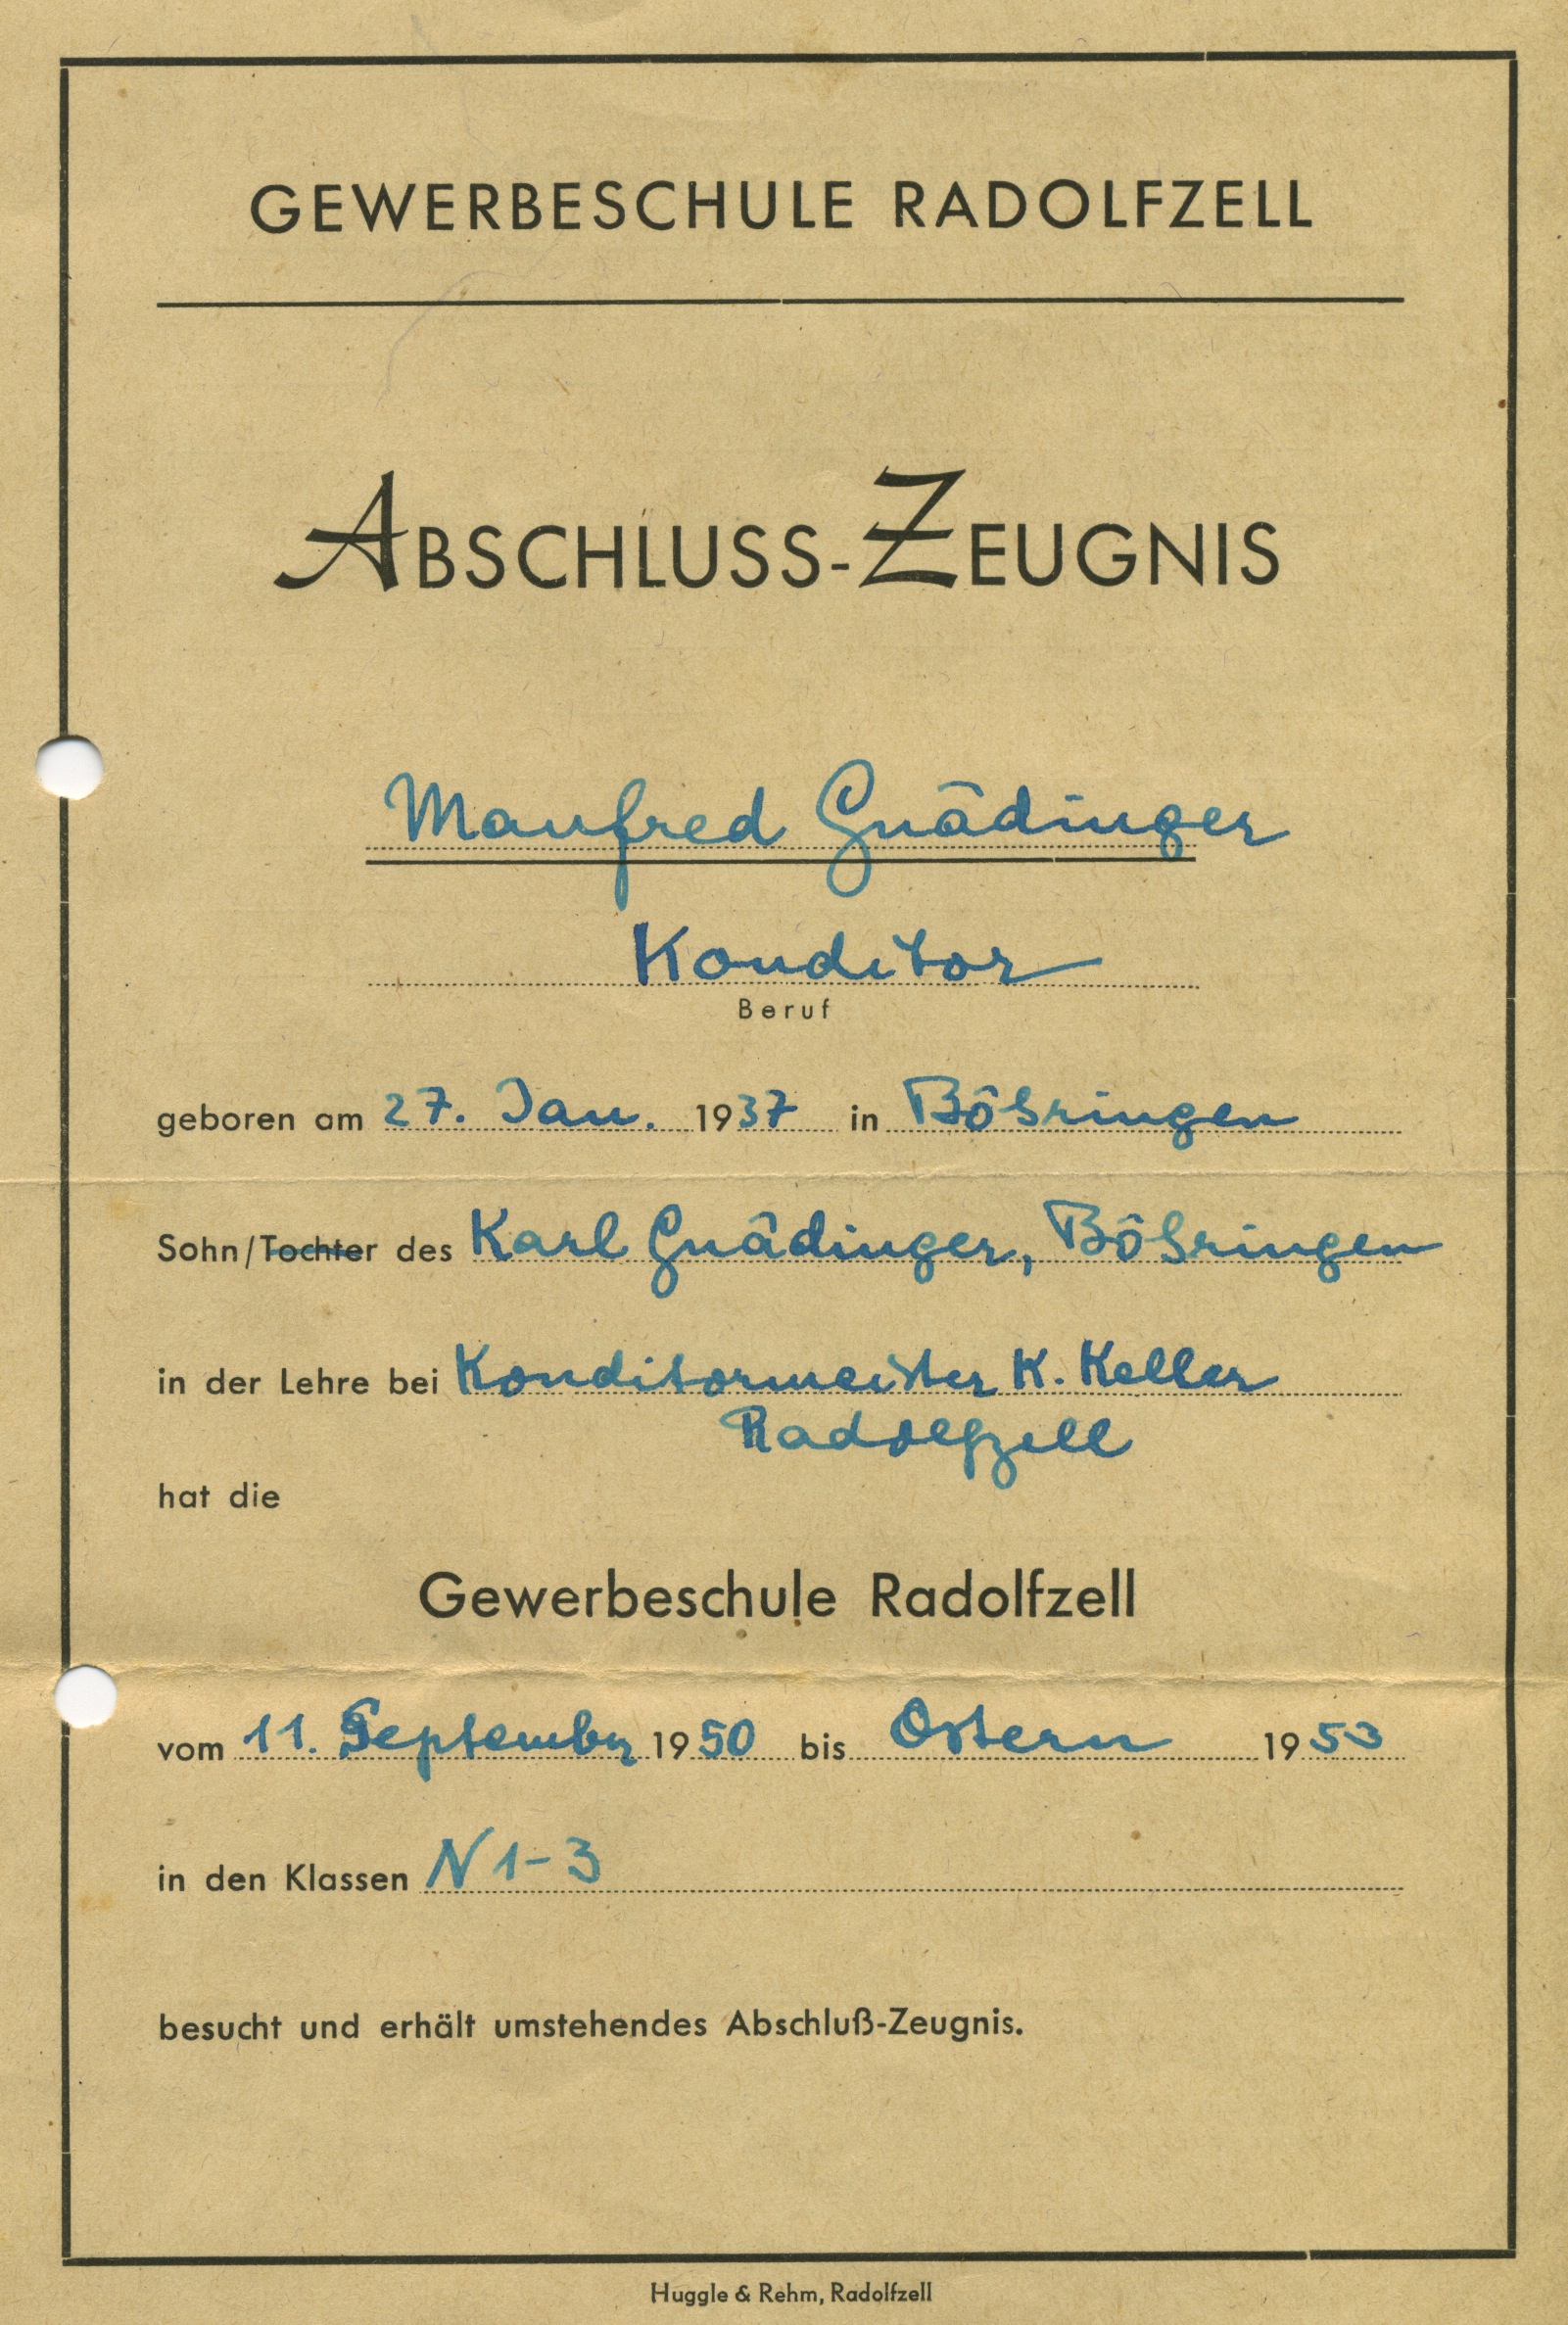 GEWERBESCHULE RADOLFZELL
ABSCHLUSS-ZEUGNIS
Manfred Gnädinger
Konditor
Beruf
geboren am 27. Jan. 1937 in Böhringen
Sohn/Tochter des Karl Gnädinger, Böhringen
in der Lehre bei Konditormeister K. Keller
Radolfzell
hat die
Gewerbeschule Radolfzell
vom 11. September 1950 bis Ostern 1953
in den Klassen N 1-3
besucht und erhält umstehendes Abschluß-Zeugnis.
Huggle & Rehm, Radolfzell